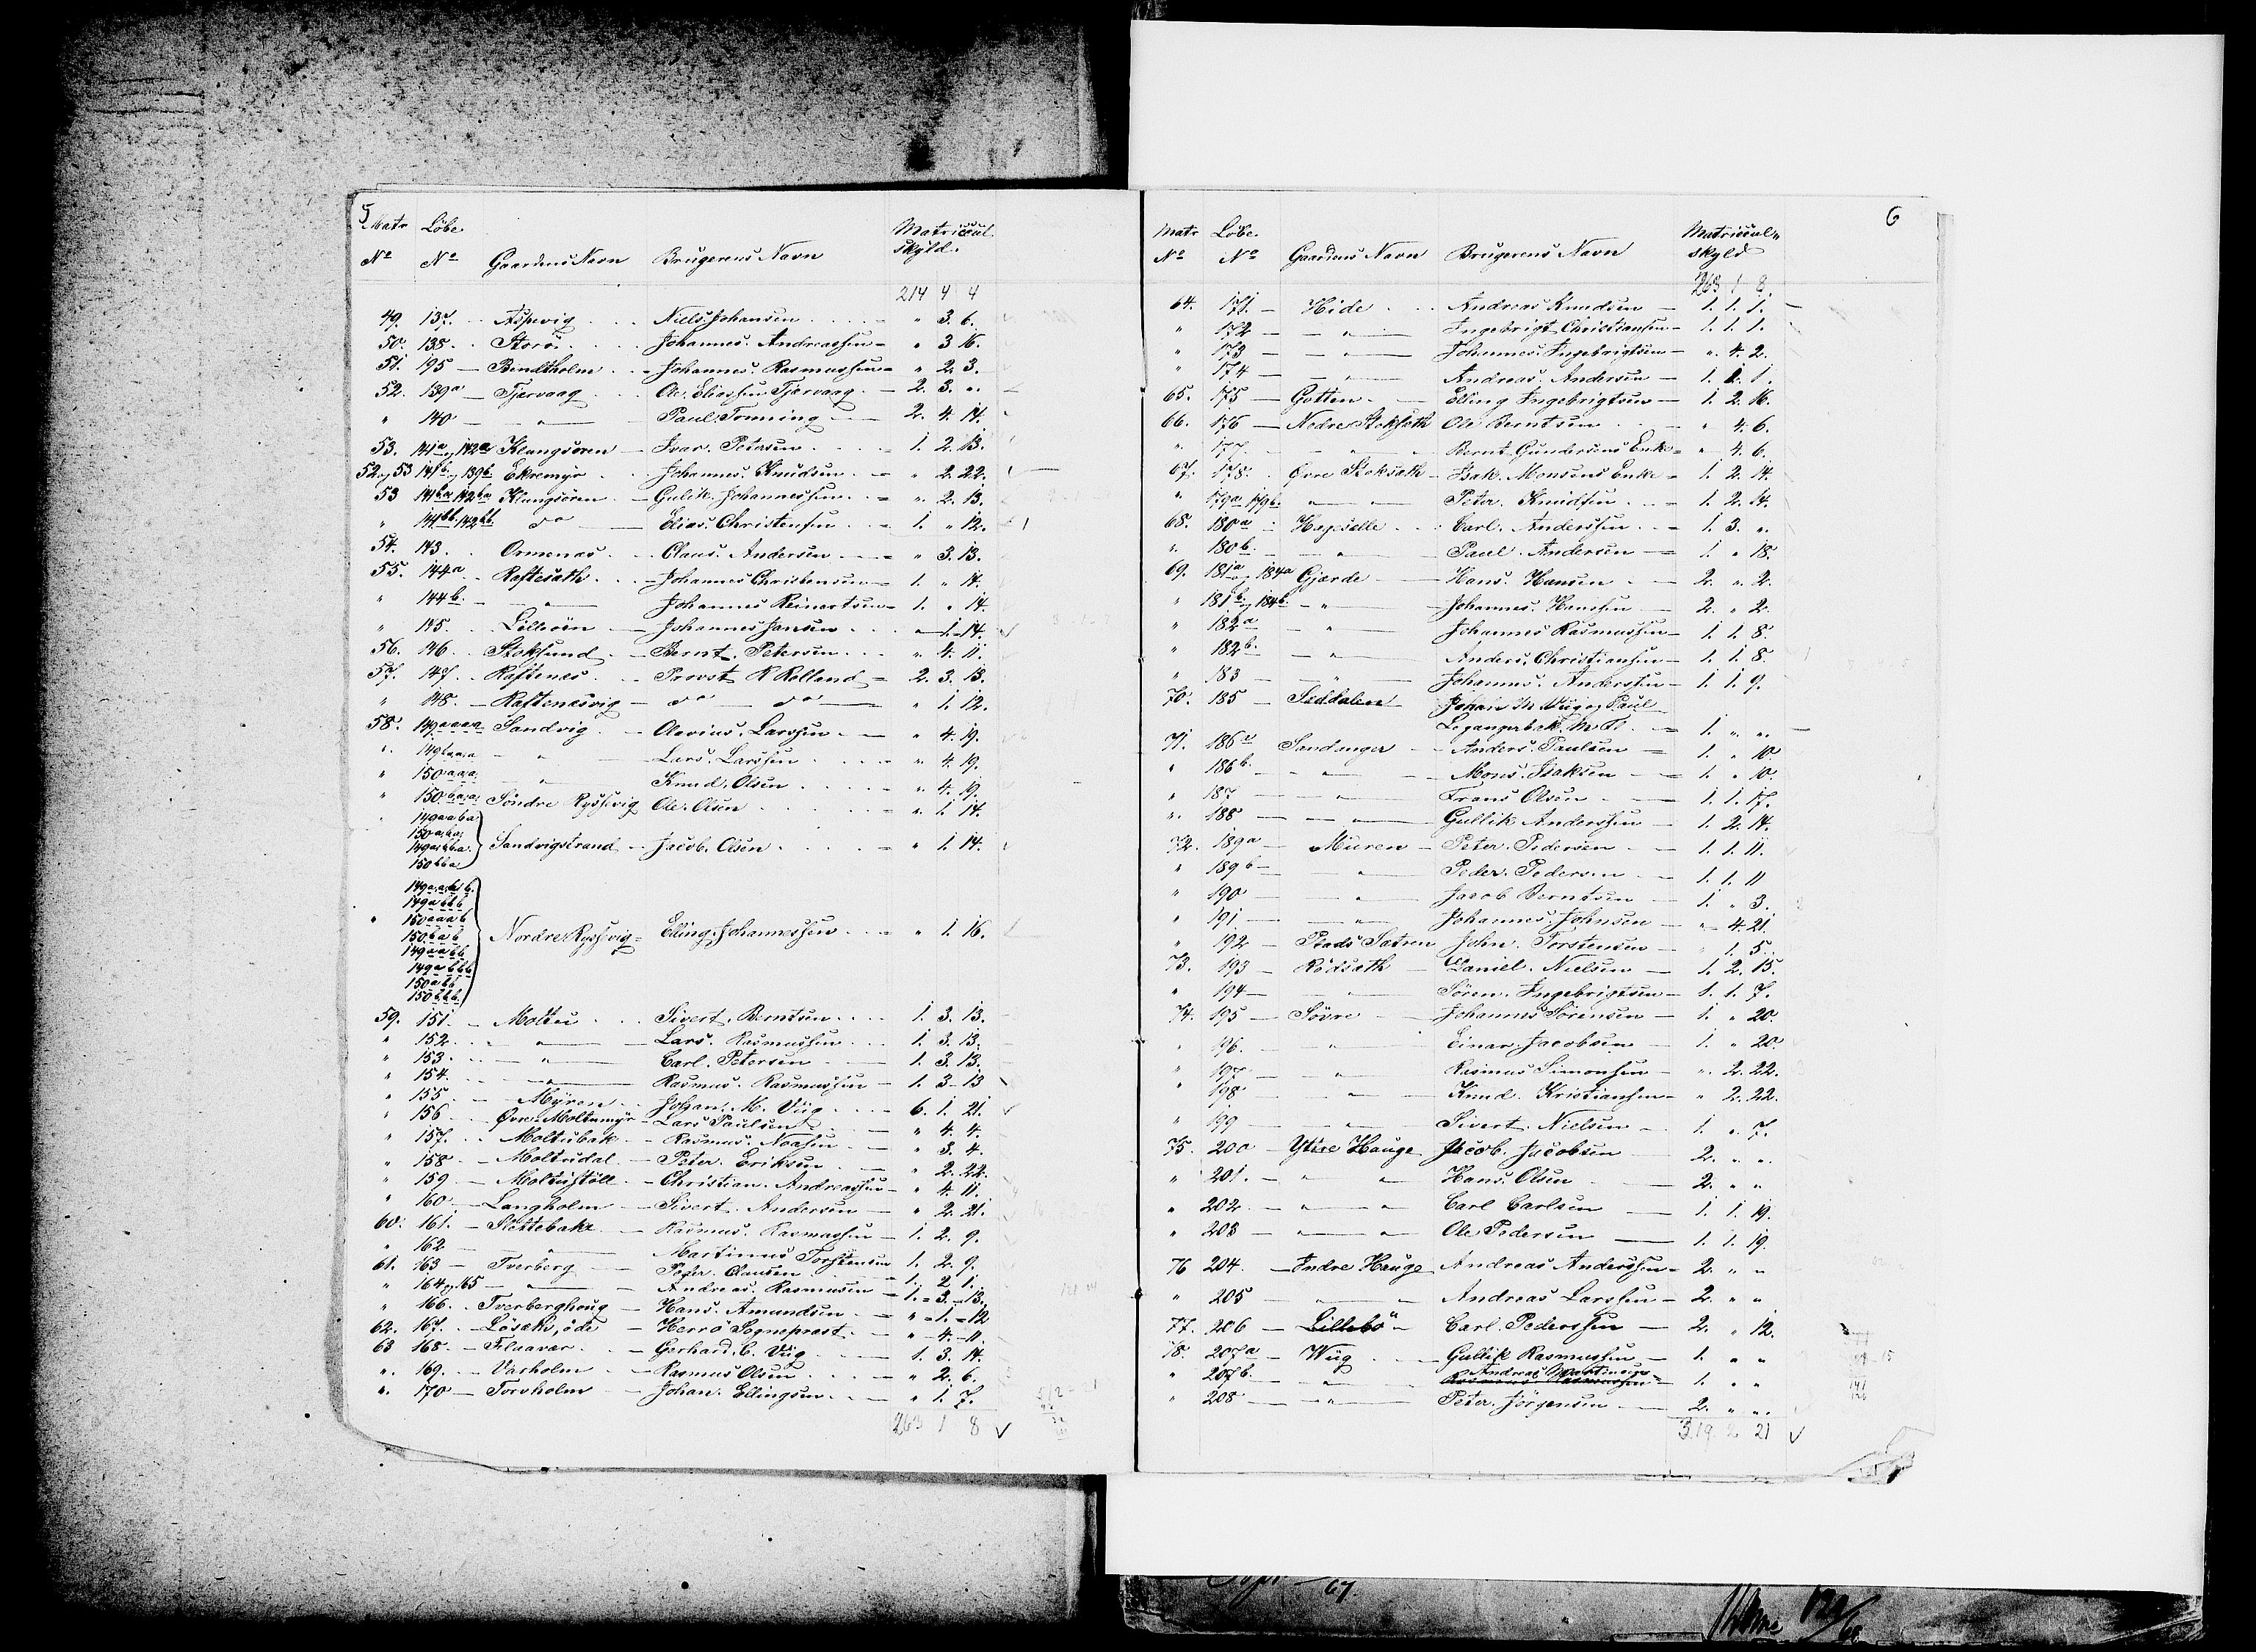 5
Matr Löbe Matricul
No No Gaardens Navn Brugerens Navn skyld.
214 4 4
49. 137. Aspevig Niels Johansen " 3. 6.
50. 138. Storö Johannes Andreassen " 3 16.
51. 195 Bindtholm Johannes Rasmussen " 2. 3.
52. 139a Tjærvaag Ole Eliassen Tjærvaag 2. 3. "
" 140 " Paul Tonning 2. 4. 14.
53. 141a og 142a Klungsøren Ivar Petersen 1. 2. 13.
52 og 53 141b og 139b Ekremyr Johannes Knudsen " 2. 22.
53 141ba 142ba Klungsøren Gulik Johannessen " 2. 13.
" 141bb. 142bb do Elias Christensen 1. " 12.
54. 143. Ormenæs Claus Andersen " 3. 13.
55. 144a Raftesæth Johannes Christensen 1. " 14.
" 144b. " Johannes Reinertsen 1. " 14.
" 145. Lilleöen Johannes Jansen " 1. 14.
56. 146. Stoksund Bernt Petersen " 4. 11.
57. 147. Raftenæs Provst K Rolland 2. 3. 13.
" 148. Raftenæsvig do do " 1. 12.
58. 149aaaa Sandvig Larssen " 4. 19.
" 149baaa " Lars Larssen " 4. 19.
" 150aaa " Knud Olsen " 4. 19.
" 150baa Söndre Ryssevig Ole Olsen " 1. 14.
" 149aaba
150aba
149abba Sandvigstrand Jacob Olsen " 1. 14.
150bba
149aabb
149abbb
" 150aaab
150bab Nordre Ryssevig Elling Johannessen " 1. 16.
149aabb
149abbb
150abb
150bbb
59. 151. Moltu Sivert Berntsen 1. 3. 13.
" 152 " Lars Rasmussen 1. 3. 13.
" 153. " Carl Petersen 1. 3. 13.
" 154. " Rasmus Rasmussen 1. 3. 13
" 155 Myren Johan M. Viig 6. 1. 21.
" 156 Øvre Moltumyr Lars Paulsen " 4. 4.
" 157. Moltubak Rasmus Noasen " 3. 4.
" 158 Moltudal Peter Eriksen " 2. 22.
" 159 Moltustöll Christian Andreassen " 4. 11.
" 160 Langholm Sivert Andersen " 2. 21.
60. 161. Slettebak Rasmus Rasmussen 1. 2. 9.
" 162 " Martinus Torstensen 1. 2. 9.
61. 163 Tverberg Peter Clausen 1. 2 1.
" 164 og 165 " Andreas Rasmusen 1. 3. 13.
" 166. Tverberghoug Hans Amundsen " 1. 12
62. 167. Lösæt, öde Herrö Sognepræst " 4. 11.
63 168. Flaavær Gerhard C. Viig 1. 3. 14.
" 169. Varholm Rasmus Olsen " 2. 6.
" 170 Torvholm Johan Ellingsen " 1. 7.
263 1 8
6
Matr Löbe Matricul
No No Gaardens Navn Brugerens Navn skyld
263 1 8.
64. 171. Hide Andreas Knudsen 1. 1. 1.
" 172 " Ingebrigt Christiansen 1. 1. 1.
" 173 " Johannes Ingebrigtsen " 4. 2.
" 174 " Andreas Andersen 1. 1. 1.
65. 175 Gotten Elling Ingebrigtsen 1. 2. 16.
66. 176 Nedre Stoksæth Ole Berntsen " 4. 6.
" 177. " Bernt Gundersens Enke " 4. 6.
67. 178. Øvre Stoksæth Isak Monsens Enke 1. 2. 14.
" 179a 179b. " Peter Knudsen 1. 2. 14.
68. 180a Hagesælle Carl Anderssen 1. 3. "
" 180b. " Paul Andersen 1. " 18.
69. 181a og 184a Gjærde Hans Hansen 2. " 2.
" 181b. og 184b. " Johannes Hansen 2. " 2.
" 182a " Johannes Rasmussen 1. 1. 8.
" 182b. " Anders Christiansen 1. 1. 8.
" 183 " Johannes Anderssen 1. 1. 9.
70. 185 Seddalen Johan M Wiig og Paul
Legangerbak M Fl. 1. " "
71. 186a Sandanger Anders Paulsen 1. " 10.
" 186b. " Mons Isaksen 1. " 10.
" 187 " Frans Olsen 1. 1. 17.
" 188 " Gullik Anderssen 1. 2. 14.
72. 189a Muren Peter Pedersen 1. 1. 11.
" 189b " Peder Pedersen 1. 1. 11
" 190 " Jacob Berntsen 1. " 3.
" 191 " Johannes Johnsen " 4. 21.
" 192 Plads Sætren John Torstensen " 1. 5.
73. 193 Rödsæth Daniel Nielsen 1. 2. 15.
" 194 " Sören Ingebrigtsen 1. 1. 7.
74. 195 Sövre Johannes Sörensen 1. " 20.
" 196. " Einar Jacobsen 1. " 20.
" 197 " Rasmus Simonsen " 2. 22.
" 198 " Knud Kristiansen " 2. 22.
" 199 " Sivert Nielsen 1. " 7.
75. 200 Ytre Hauge Jacob Jacobsen 2. " "
" 201. " " Hans Olsen 2. " "
" 202 " " Carl Carlsen 1. 1. 19.
" 203 " " Ole Pedersen 1. 1. 19.
76 204. Indre Hauge Andreas Anderssen 2. " "
" 205 " " Andreas Larssen 2. " "
77. 206 Lillebö Carl Pederssen 2. " 12.
78. 207a Wiig Gullik Rasmussen 1. " "
" 207b. " Andreas Martinus Rasmussen 1. " "
" 208 " Peter Jörgensen 2. " "
319. 2 21